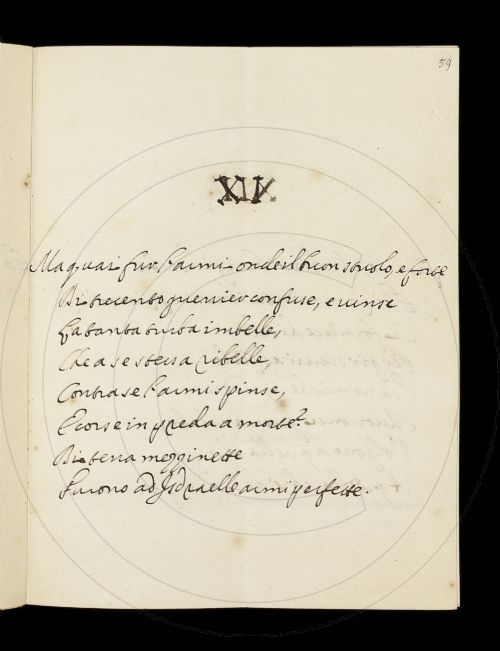 59
XIV
Ma quai fur l'armi onde il buon stuolo, e forte
Di trecento guerrier confuse, e vinse
La tanta turba imbelle,
Che a se stessa ribelle,
Contra se l'armi spinse,
E corse in preda a morte?
Di terra mezzinette
Furono ad Isdraelle armi perfette.